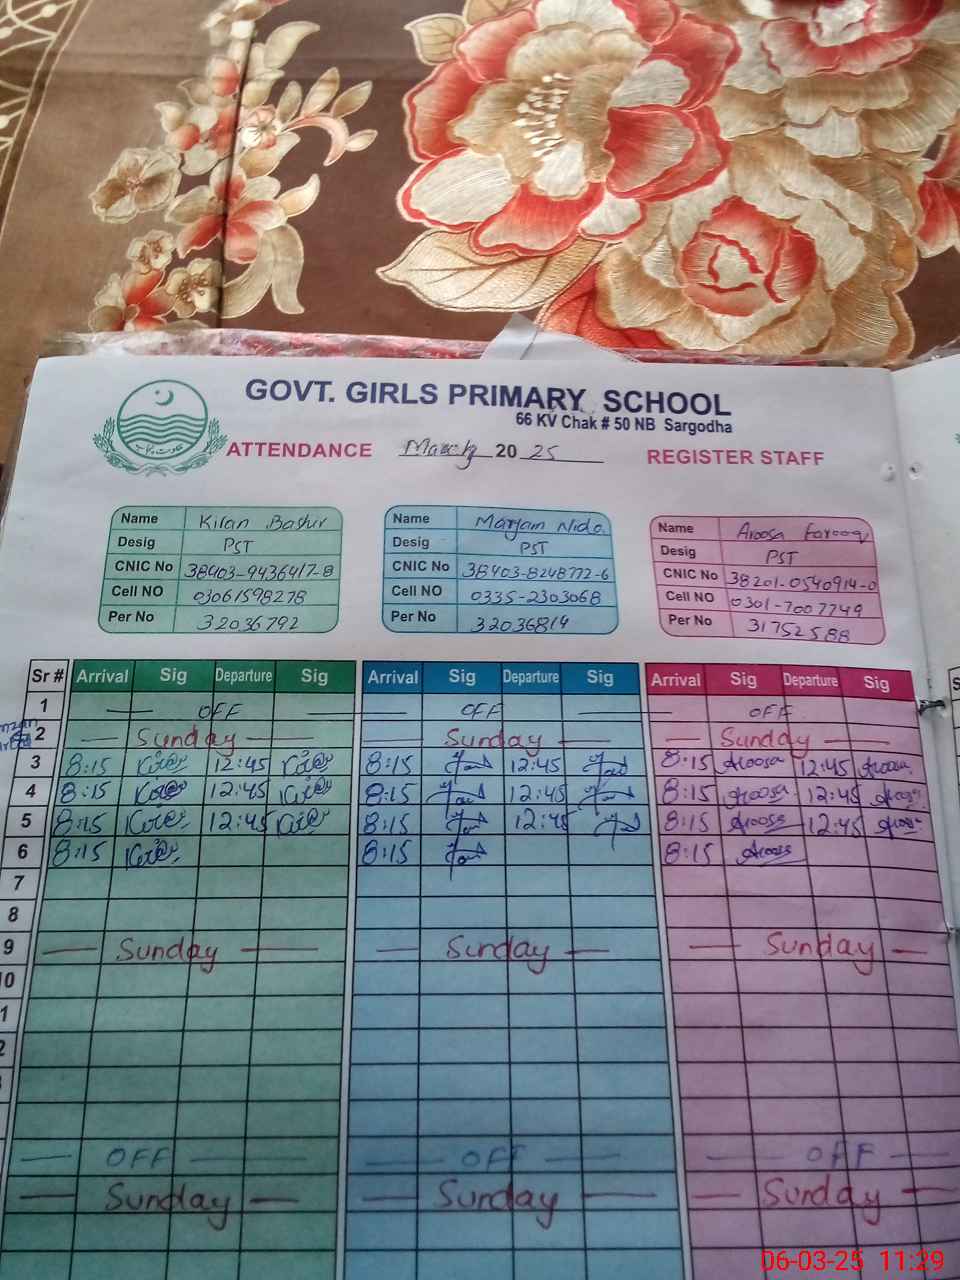 GOVT. GIRLS PRIMARY SCHOOL
66 KV Chak # 50 NB Sargodha
ATTENDANCE March 2025 REGISTER STAFF
Name Kiran Bashir
Desig PST
CNIC No 38403-9436417-8
Cell NO 03061598278
Per No 32036792
Name Maryam Nida
Desig PST
CNIC No 38403-8248772-6
Cell NO 0335-2303068
Per No 32036814
Name Aroosa Farooq
Desig PST
CNIC No 38201-0540914-0
Cell NO 0301-7007749
Per No 31752588
Sr # Arrival Sig Departure Sig Arrival Sig Departure Sig Arrival Sig Departure Sig
1 OFF OFF OFF
2 Sunday Sunday Sunday
3 8:15 12:45 8:15 12:45 8:15 Aroosa 12:45 Aroosa
4 8:15 12:45 8:15 12:45 8:15 Aroosa 12:45 Aroosa
5 8:15 12:45 8:15 12:45 8:15 Aroosa 12:45 Aroosa
6 8:15 8:15 8:15 Aroosa
7
8
9 Sunday Sunday Sunday
10
OFF OFF OFF
Sunday Sunday Sunday
06-03-25 11:29